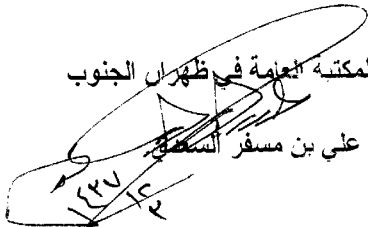 المكتبة العامة في ظهران الجنوب
علي بن مسفر
١٤٣٧